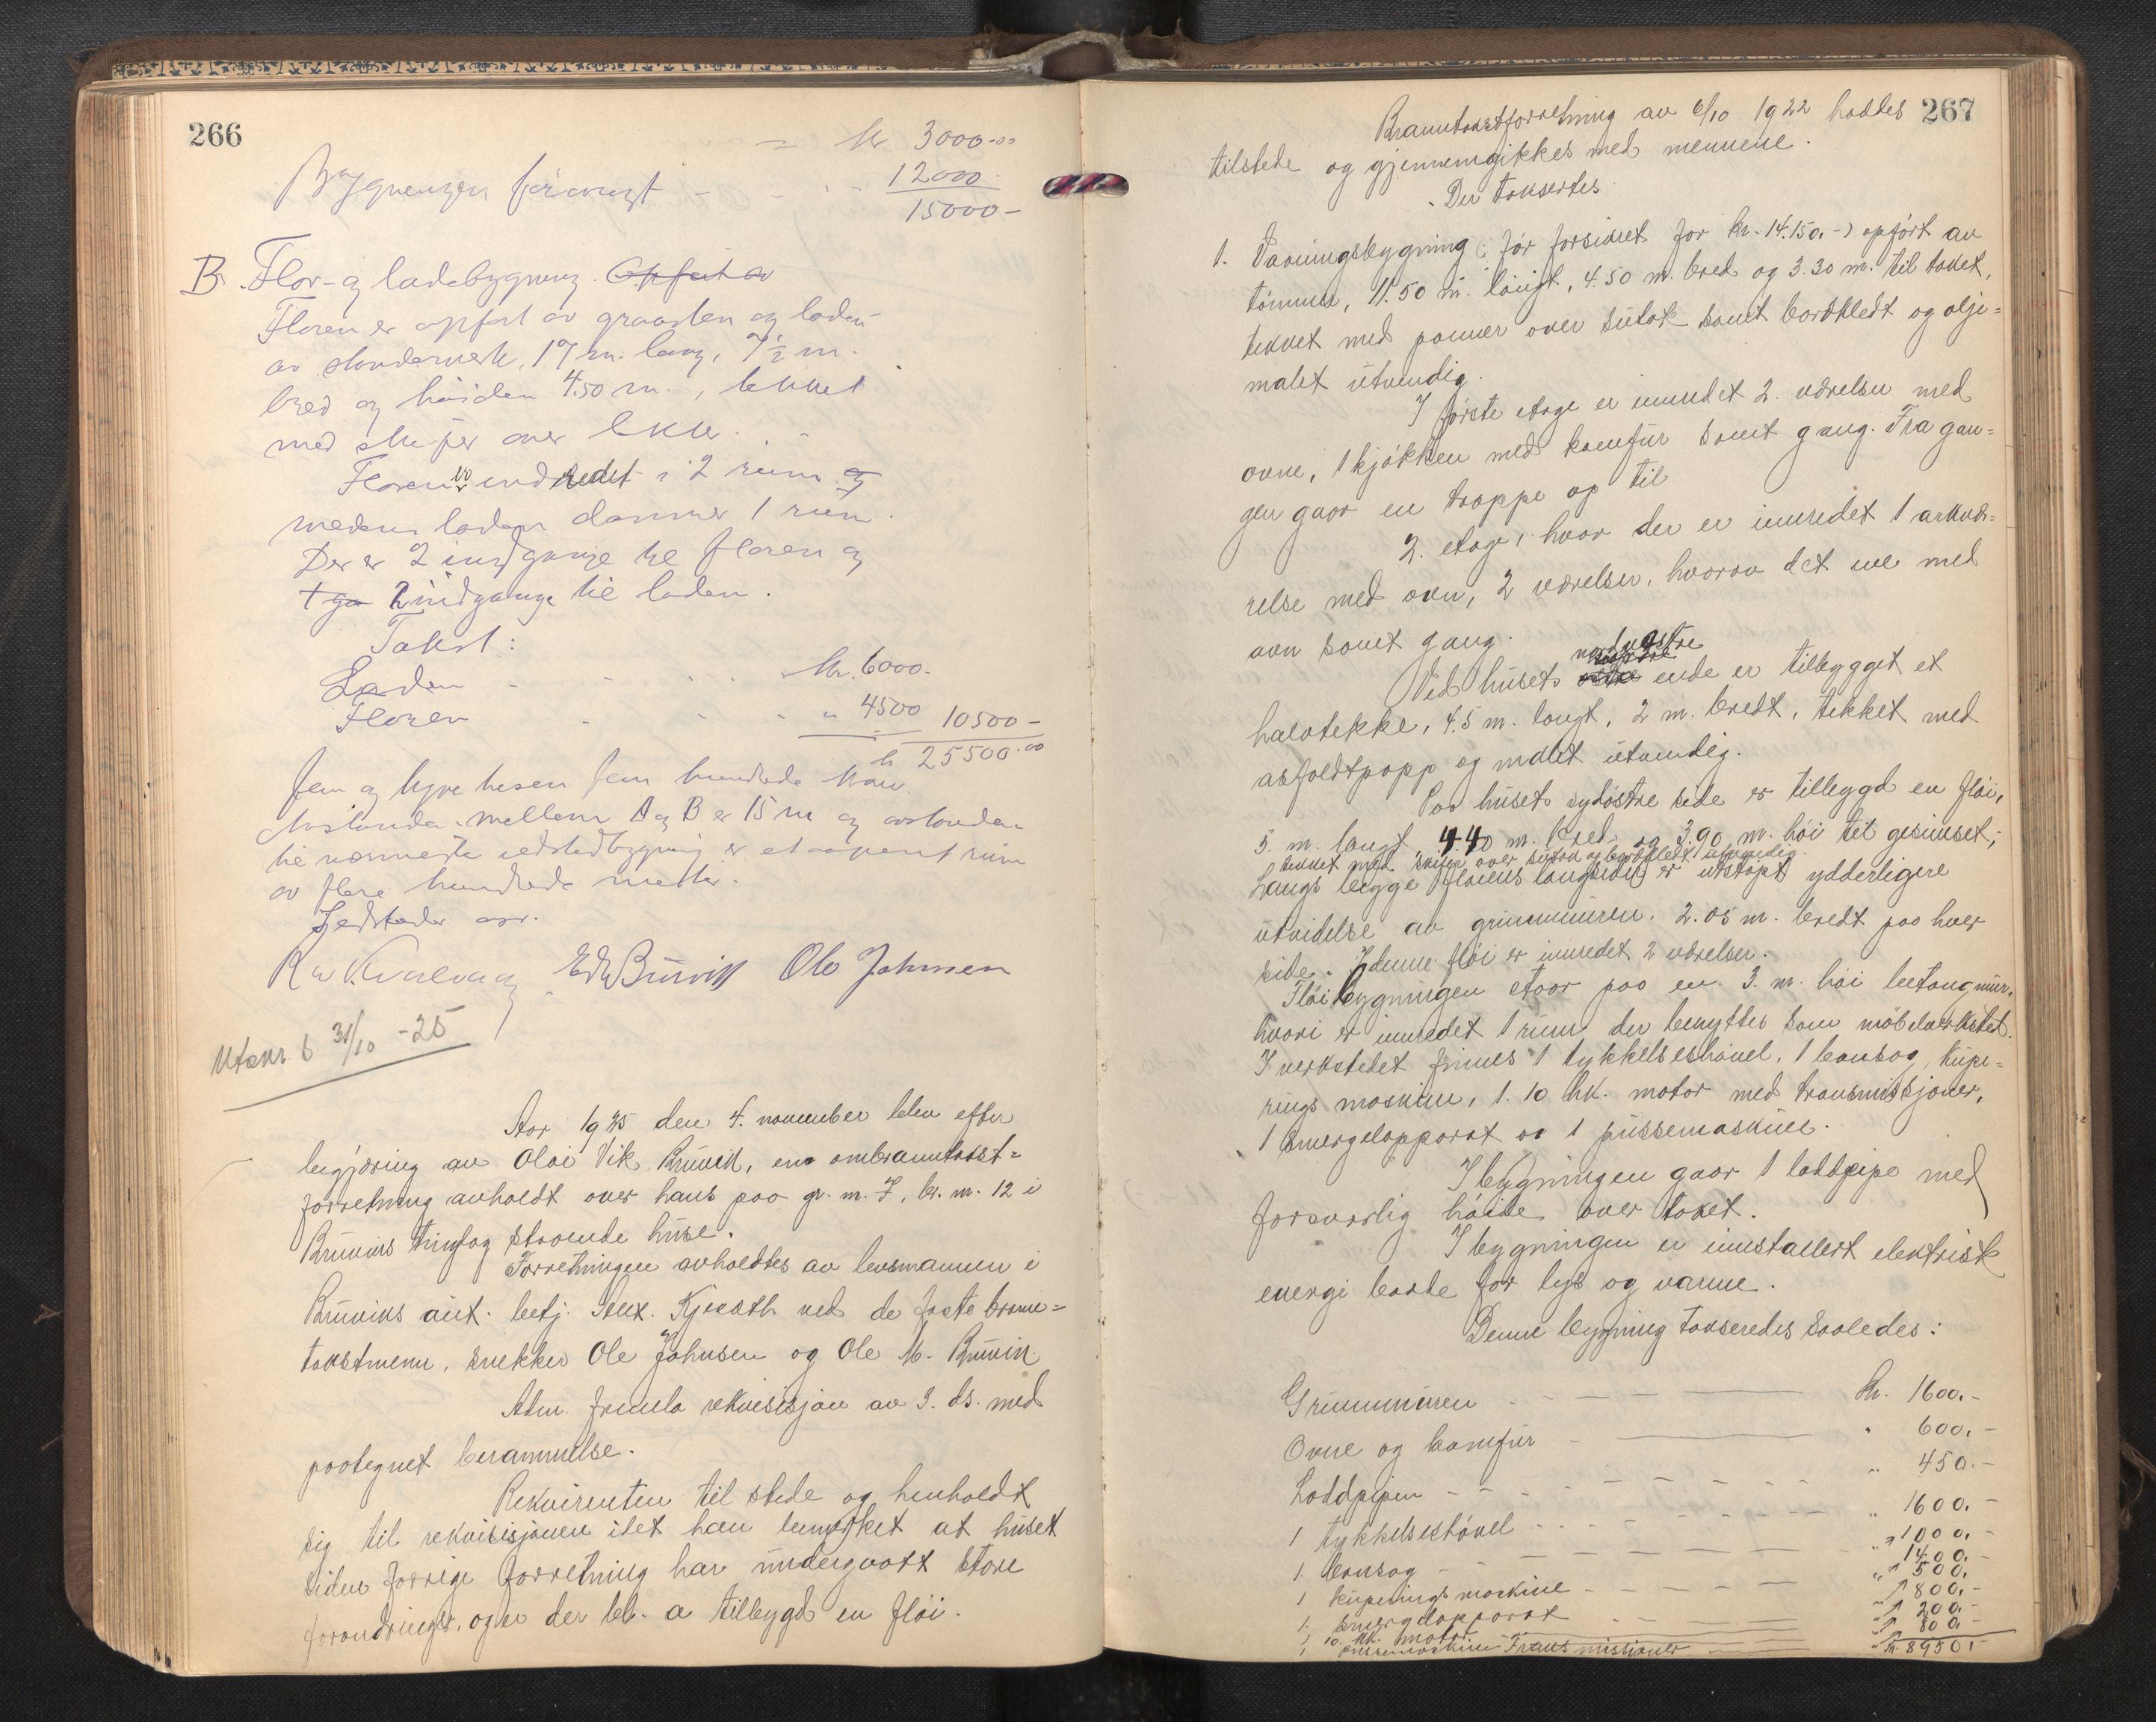 266
kr 3000.00
Bygningen forøvrigt - - - 12000.
15000-
B. Flor- og ladebygning. Opført av
Floren er opført av graasten og laden
av standerverk, 17 m. lang, 7½ m.
bred og høiden 4.50 m., tekket
med skifer over lekter.
Floren er indredet i 2 rum og
medens laden danner 1 rum.
Der er 2 indgange til floren og
1 ga 2 indgange til laden.
Takst:
Laden - - - - kr. 6000.-
Floren - - - - " 4500 10500-
kr 25500.00
Fem og tyve tusen fem hundrede kron
Avstanden mellem A og B er 15 m og avstanden
til nærmeste ildstedbygning er et aapent rum
av flere hundrede meter.
Ildsteder
R W. Kvalevaag Edv Bruvik Ole Johnsen
Utskr. b 31/10 -25
Aar 1935 den 4. november blev efter
begjæring av Olai Vik Bruvik, en ombranntakst-
forretning avholdt over hans paa gr. nr. 7, br. nr. 12 i
Bruviks tinglag staaende huse.
Forretningen avholdtes av lensmannen i
Bruviks aut. betj. Alex. Kjosaeth ved de faste brann-
takstmenn, snekker Ole Johnsen og Ole M. Bruvik
Adm. fremla rekvisisjon av 3. ds. med
paategnet berammelse.
Rekvirenten til stede og henholdt
sig til rekvisisjonen idet han bemerket at huset
siden forrige forretning har undergaatt store
forandringer, og er der bl. a tilbygd en fløi.
267
Branntakstforretning av 6/10 1922 haddes
tilstede og gjennemgikkes med mennene.
Der taksertes
1. Vaaningsbygning (før forsikret for kr. 14.150.-) opført av
tømmer, 11.50 m. langt, 4.50 m. bred og 3.30 m. til taket,
tekket med panner over sutak samt bordkledt og olje-
malet utvendig.
I første etage er innredet 2. værelser med
ovne, 1 kjøkken med komfur samt gang. Fra gan-
gen gaar en trappe op til
2. etage, hvor der er innredet 1 arkvæ-
relse med ovn, 2 værelser, hvorav det ene med
ovn samt gang.
nordvestre
Ved husets ende er tilbygget et
halvtekke, 4.5 m. langt, 2 m. bredt, tekket med
asfaltpapp og malt utvendig.
Paa husets sydøstre side er tilbygd en fløi,
5. m. langt 4.40 m. bred og 3.90 m. høi til gesimset,
tekket med skifer over sutak og bordkledt utvendig.
Langs begge fløiens langsider er utstøpt ydderligere
utvidelse av grunnmuren. 2.05 m. bredt paa hver
side. I denne fløi er innredet 2 værelser.
Fløibygningen staar paa en 3. m. høi betongmur,
hvori er innredet 1 rum der benyttes som møbelverksted.
I verkstedet finnes 1 tykkelseshøvel, 1 bansag, kupe-
rings maskine, 1. 10 hk. motor med transmissjoner,
1 smergelapparat og 1 pussemaskine.
I bygningen gaar 1 loddpipe med
forsvarlig høide over taket.
I bygningen er innstallert elektrisk
energi baade for lys og varme.
Denne bygning takseredes saaledes:
Grunnmuren - - - Kr. 1600.-
Ovne og komfur - " 600.-
Loddpipen - - - " 450.-
1 tykkelseshøvel - - - " 1600.-
1. bansag - - - " 1000.-
1 kuperings maskine - - - " 1400.-
1. smergelapparat - - " 500.
1 10. hk. motor " 800.-
1 pussemaskine " 200.-
Transmissjoner " 800.-
Kr. 8950.-